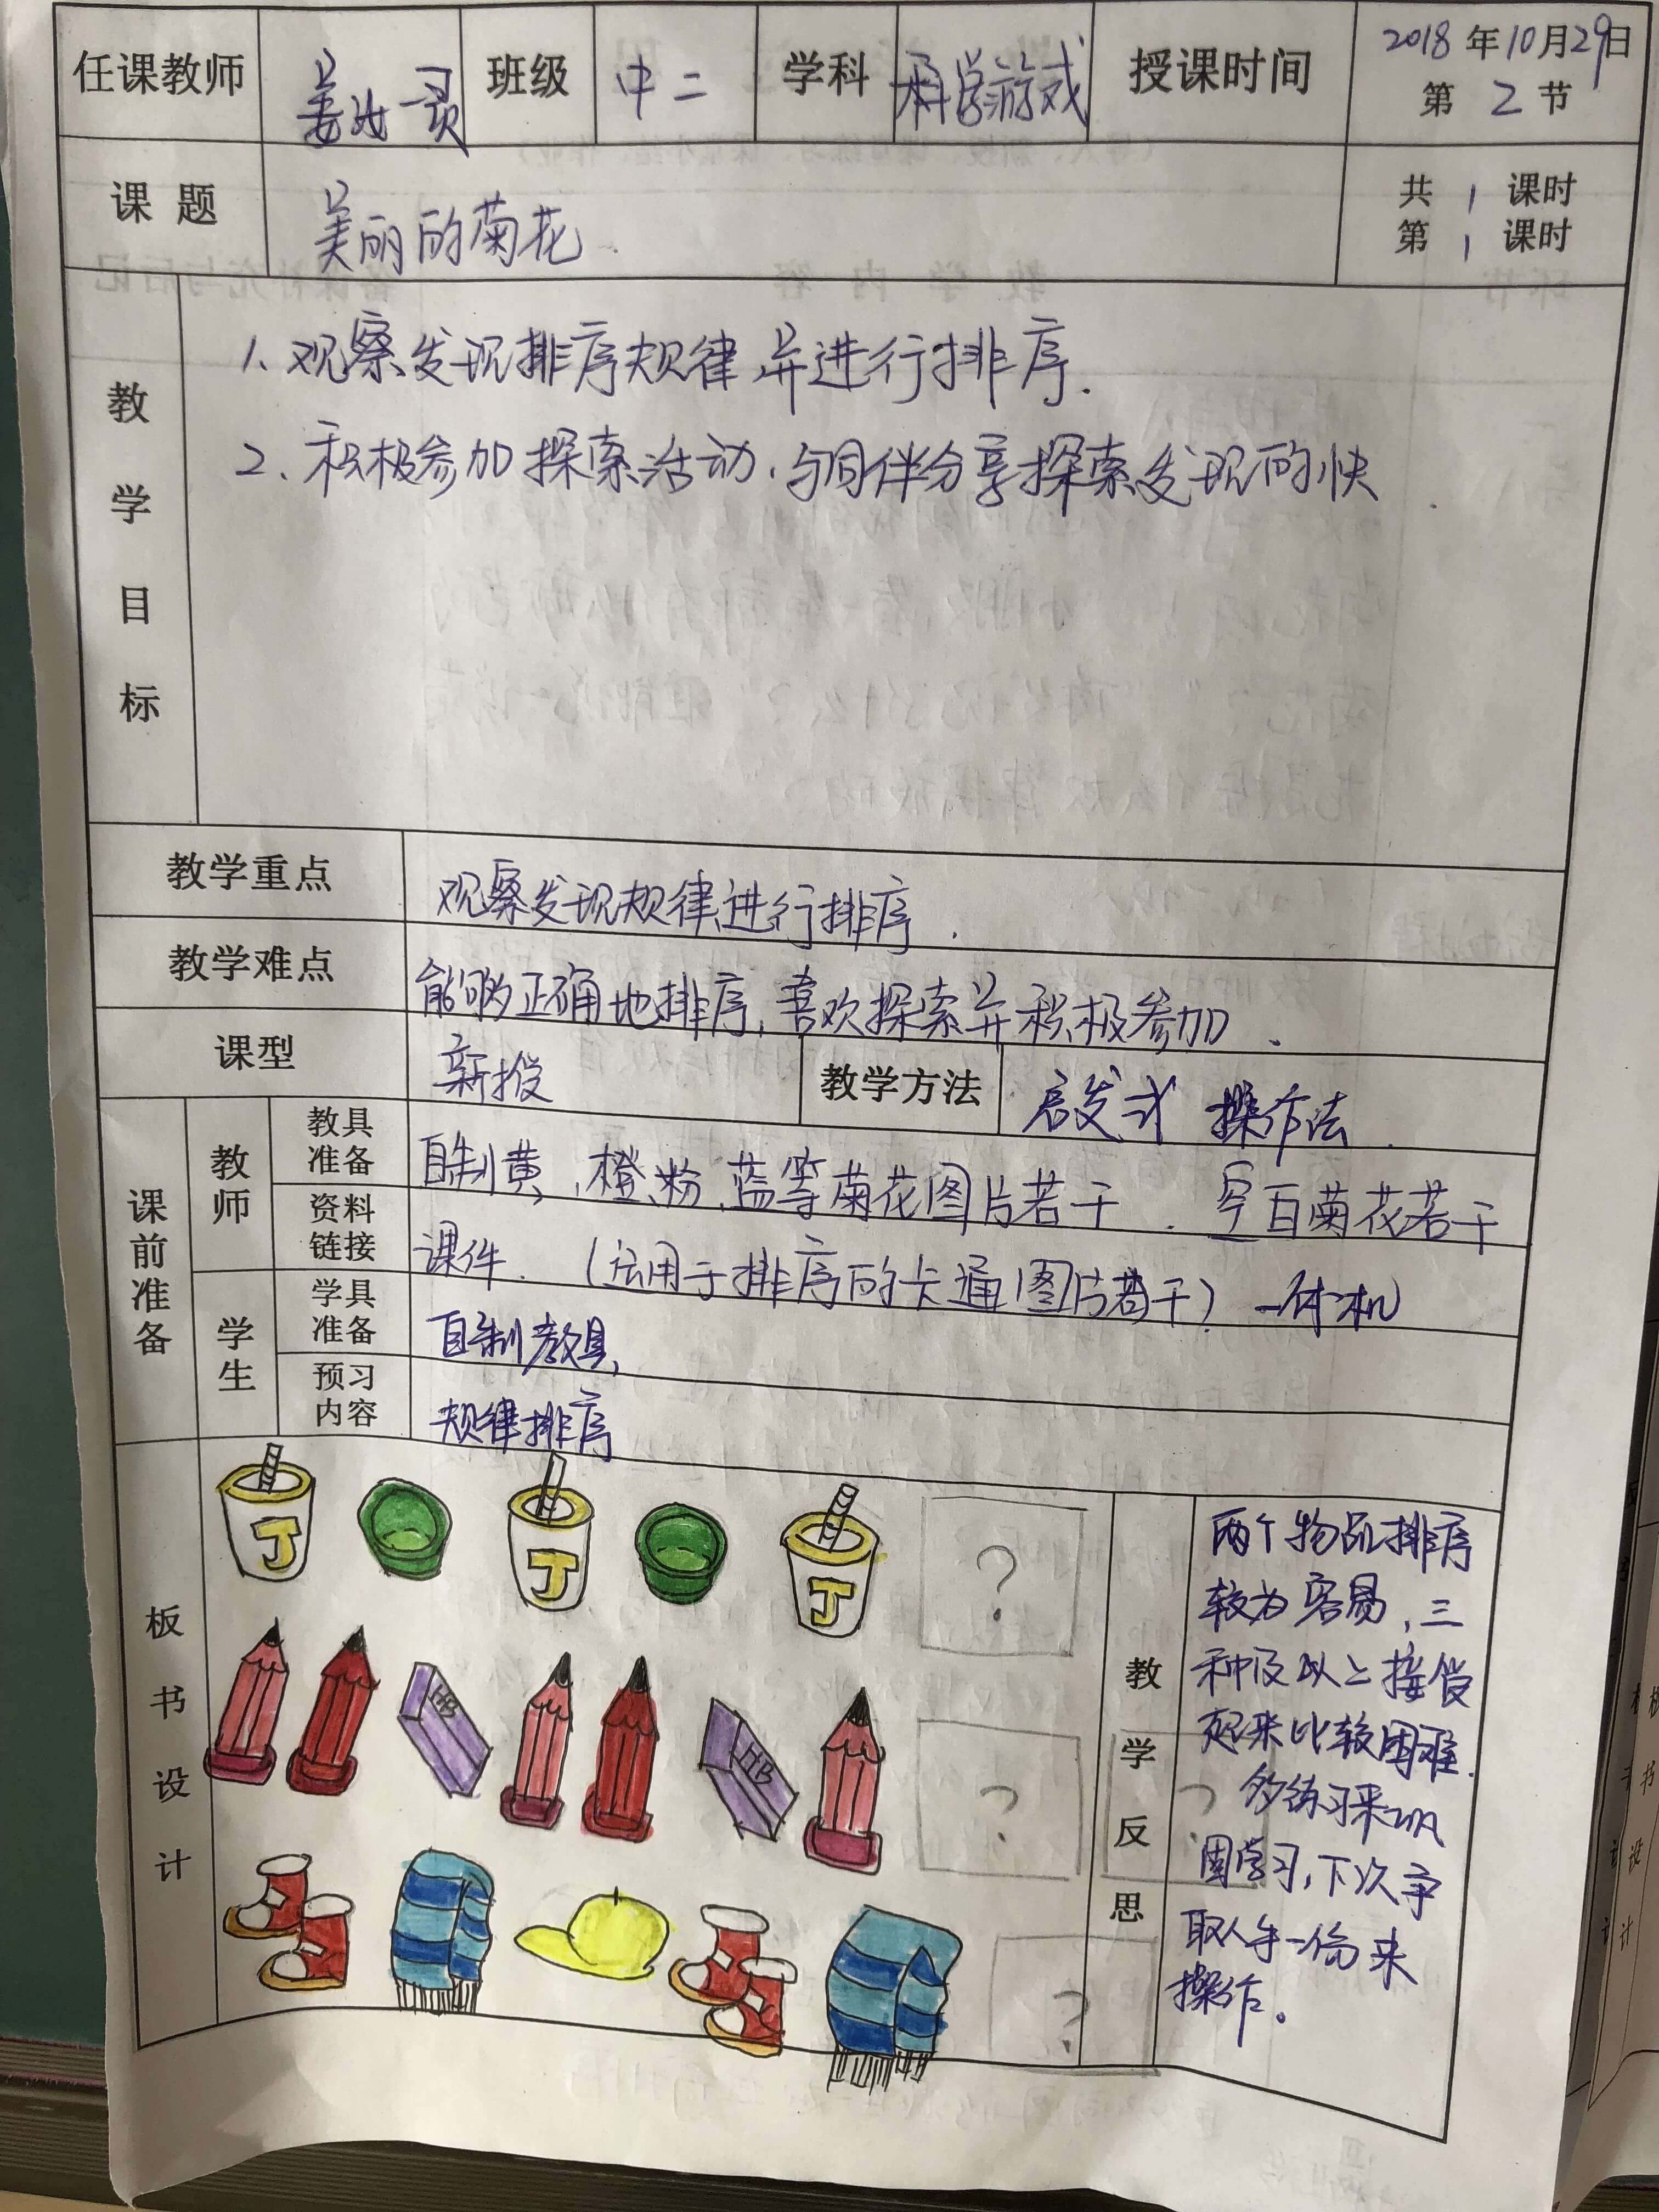 任课教师 姜汝灵 班级 中二 学科 科学游戏 授课时间 2018年10月29日
第 2 节
课 题 美丽的菊花.
共 1 课时
第 1 课时
教学目标
1、观察发现排序规律,并进行排序.
2、积极参加探索活动,与同伴分享探索发现的快
教学重点 观察发现规律进行排序.
教学难点 能够正确地排序,喜欢探索并积极参加.
课型 新授 教学方法 启发式 操作法.
课前准备
教师
教具准备 自制黄、橙、粉、蓝等菊花图片若干. 空白菊花若干
资料链接 课件. (运用于排序的卡通图片若干) 一体机
学生
学具准备 自制教具,
预习内容 规律排序
板书设计
J J J ?
HB HB ? ?
?
教学反思
两个物品排序
较为容易,三
种及以上接受
起来比较困难.
多练习来巩
固学习,下次争
取人手一份来
操作。